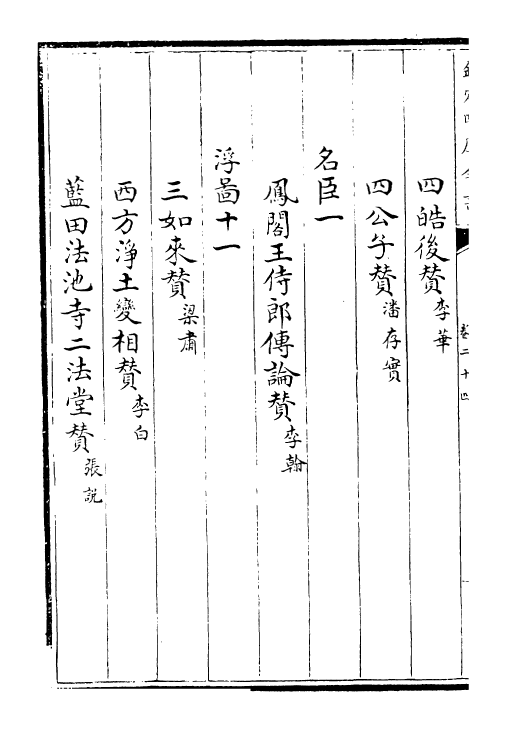 欽定四庫全書
卷二十四
四皓後賛李華
四公子賛潘存實
名臣一
鳳閣王侍郎傳論賛李翰
浮啚十一
三如來賛梁肅
西方淨土變相賛李白
藍田法池寺二法堂賛張說